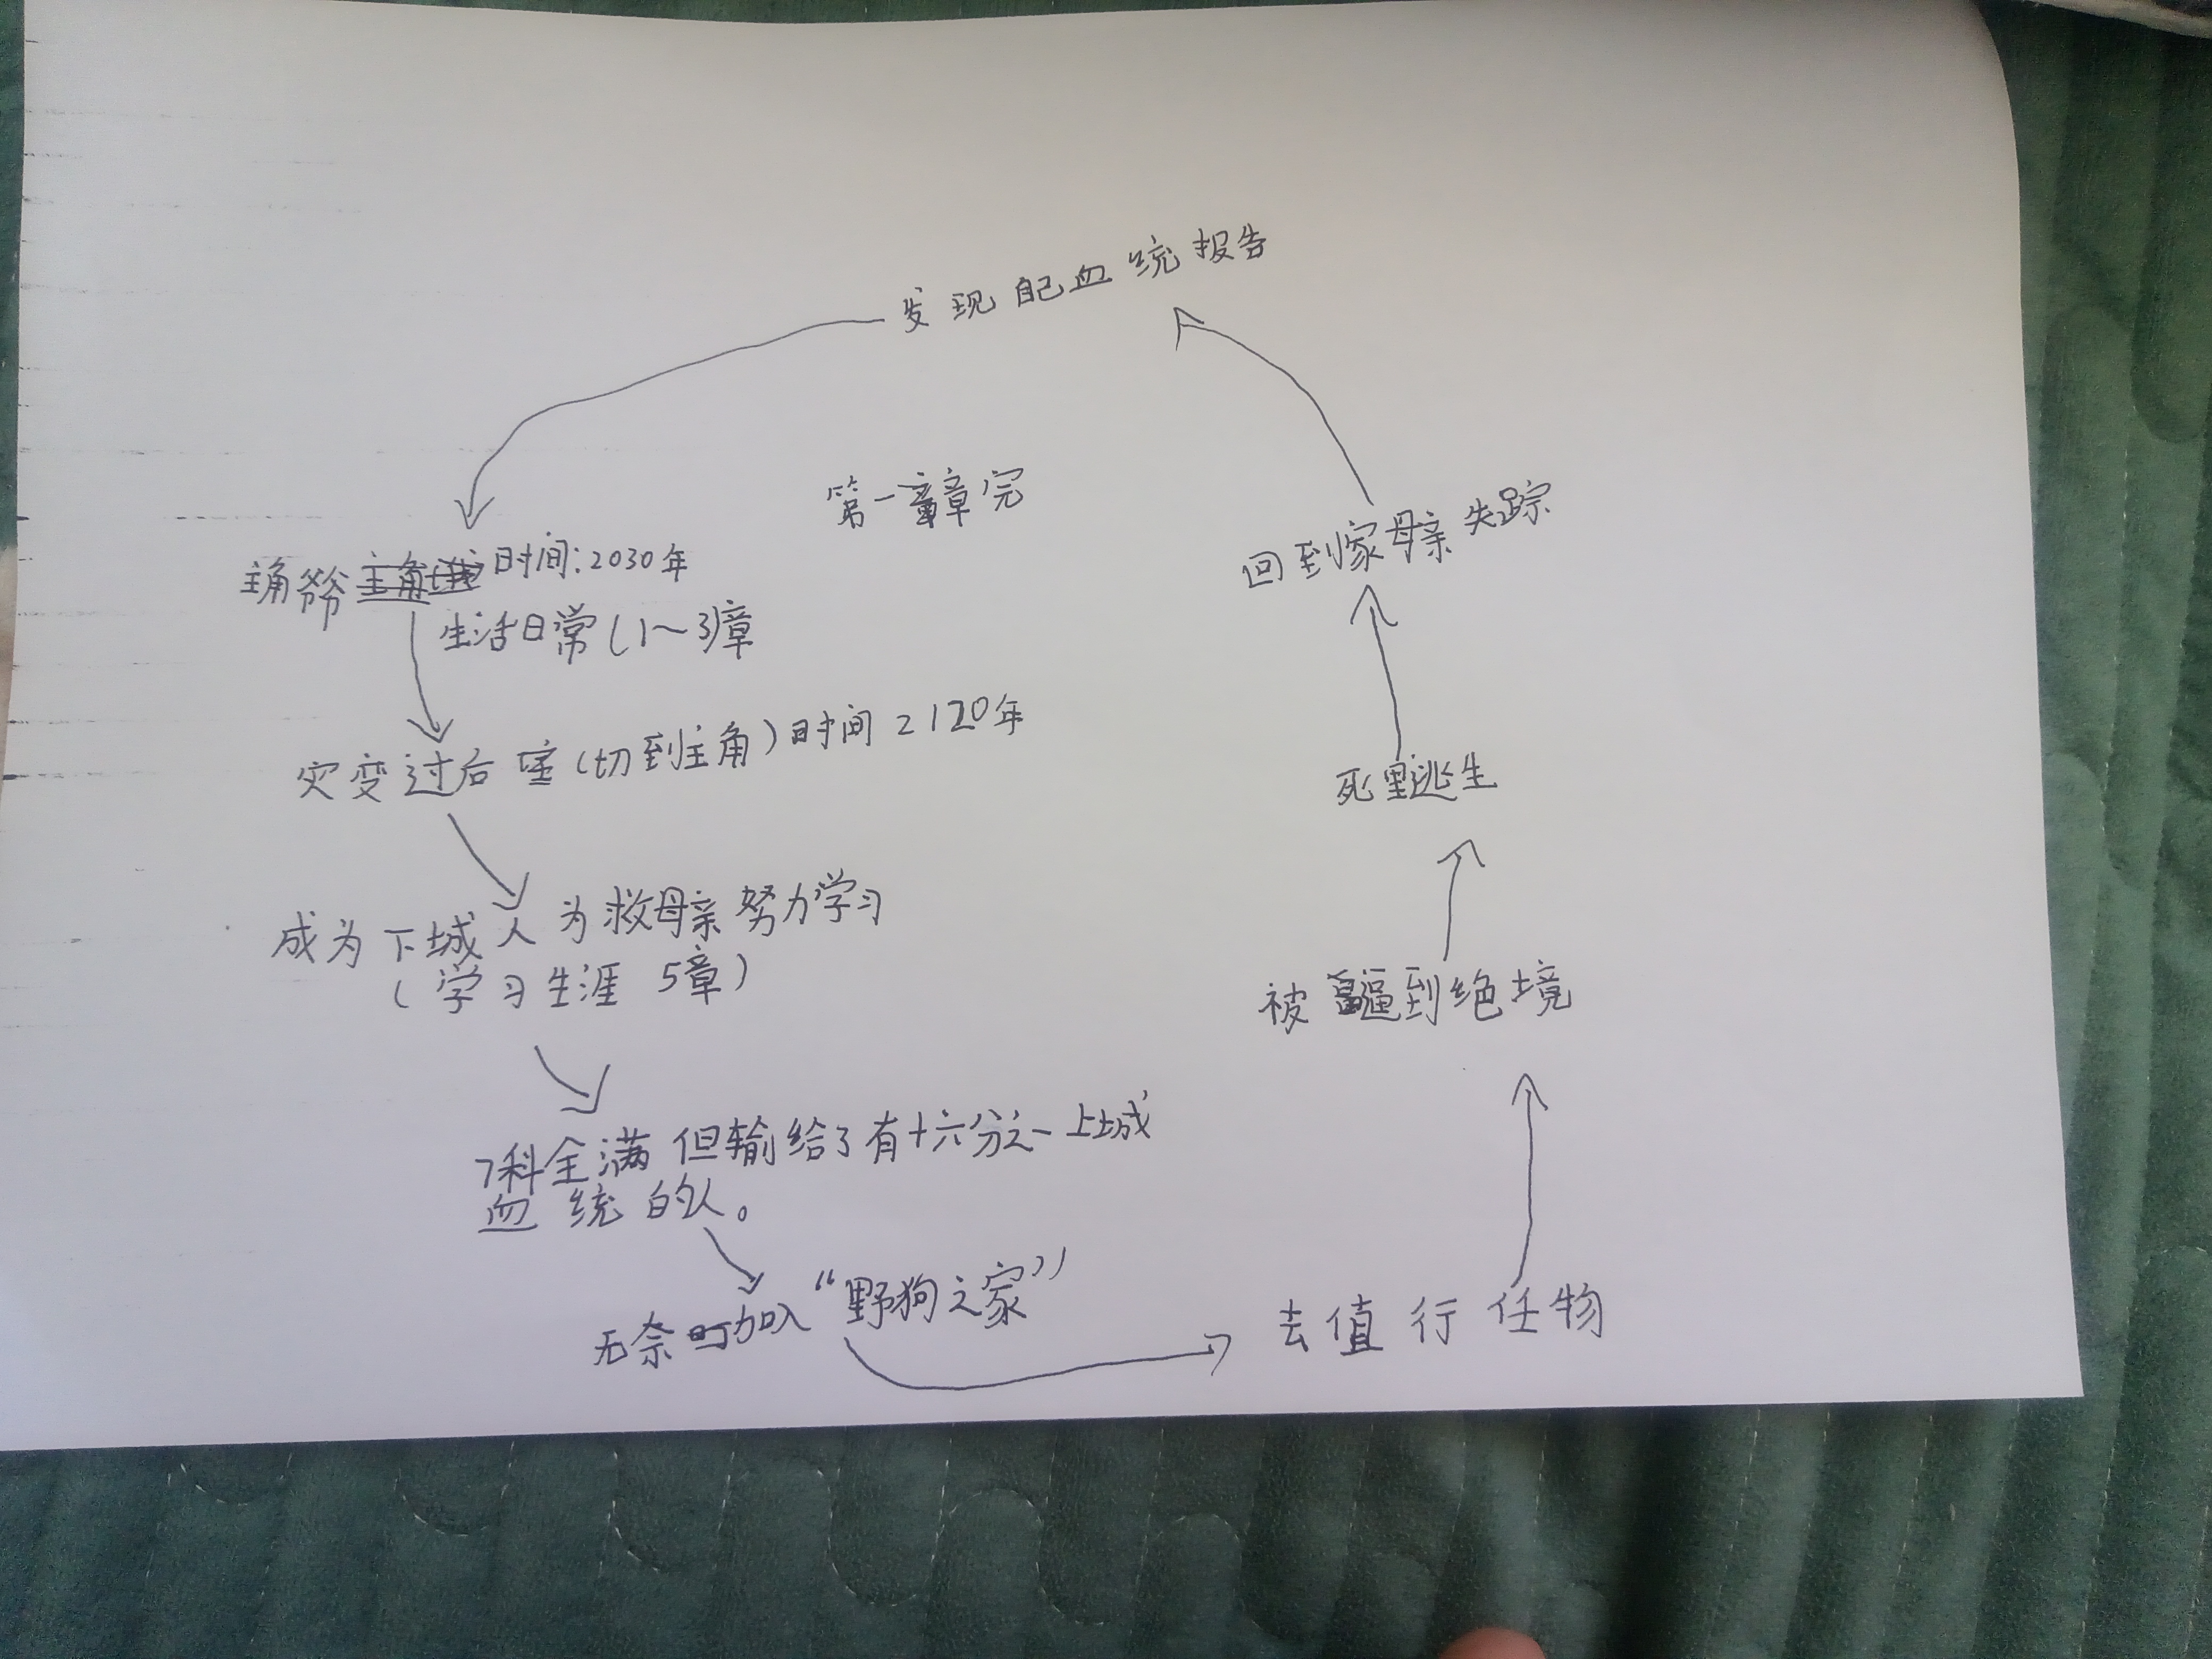 发现自己血统报告
第一章完
主角爷爷 时间:2030年
生活日常(1~3)章
灾变过后 (切到主角)时间2120年
成为下城人为救母亲努力学习
(学习生涯 5章)
7科全满但输给了有十六分之一上城
血统的人。
无奈 加入“野狗之家”
去值行任物
被逼到绝境
死里逃生
回到家母亲失踪